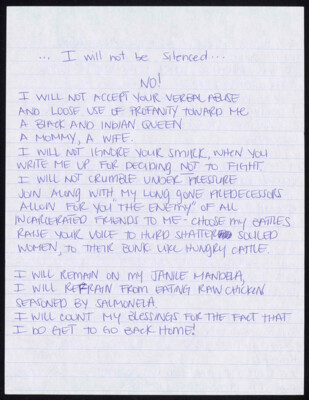 ... I will not be silenced...
NO!
I WILL NOT ACCEPT YOUR VERBAL ABUSE
AND LOOSE USE OF PROFANITY TOWARD ME
A BLACK AND INDIAN QUEEN
A MOMMY, A WIFE.
I WILL NOT IGNORE YOUR SMIRK, WHEN YOU
WRITE ME UP FOR DECIDING NOT TO FIGHT.
I WILL NOT CRUMBLE UNDER PRESSURE
JOIN ALONG WITH MY LONG GONE PREDECESSORS
ALLOW FOR YOU "THE ENEMY" OF ALL
INCARCERATED FRIENDS TO ME - CHOOSE MY BATTLES
RAISE YOUR VOICE TO HURD SHATTER SOULED
WOMEN, TO THEIR BUNK LIKE HUNGRY CATTLE.
I WILL REMAIN ON MY JANILE MANDELA,
I WILL REFRAIN FROM EATING RAW CHICKEN
SEASONED BY SALMONELA.
I WILL COUNT MY BLESSINGS FOR THE FACT THAT
I DO GET TO GO BACK HOME!